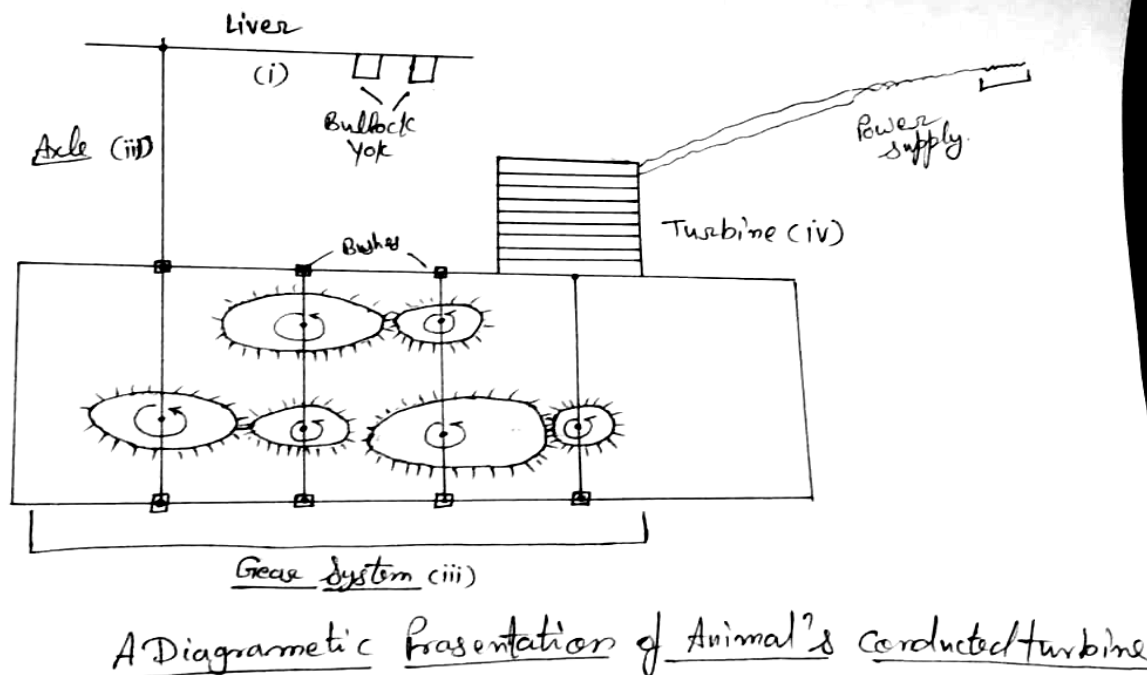 Liver
(i)
Bullock
Yok
Axle (ii)
Power
supply.
Turbine (iv)
Bushes
Gear System (iii)
A Diagrametic Prasentation of Animal's Conducted turbine